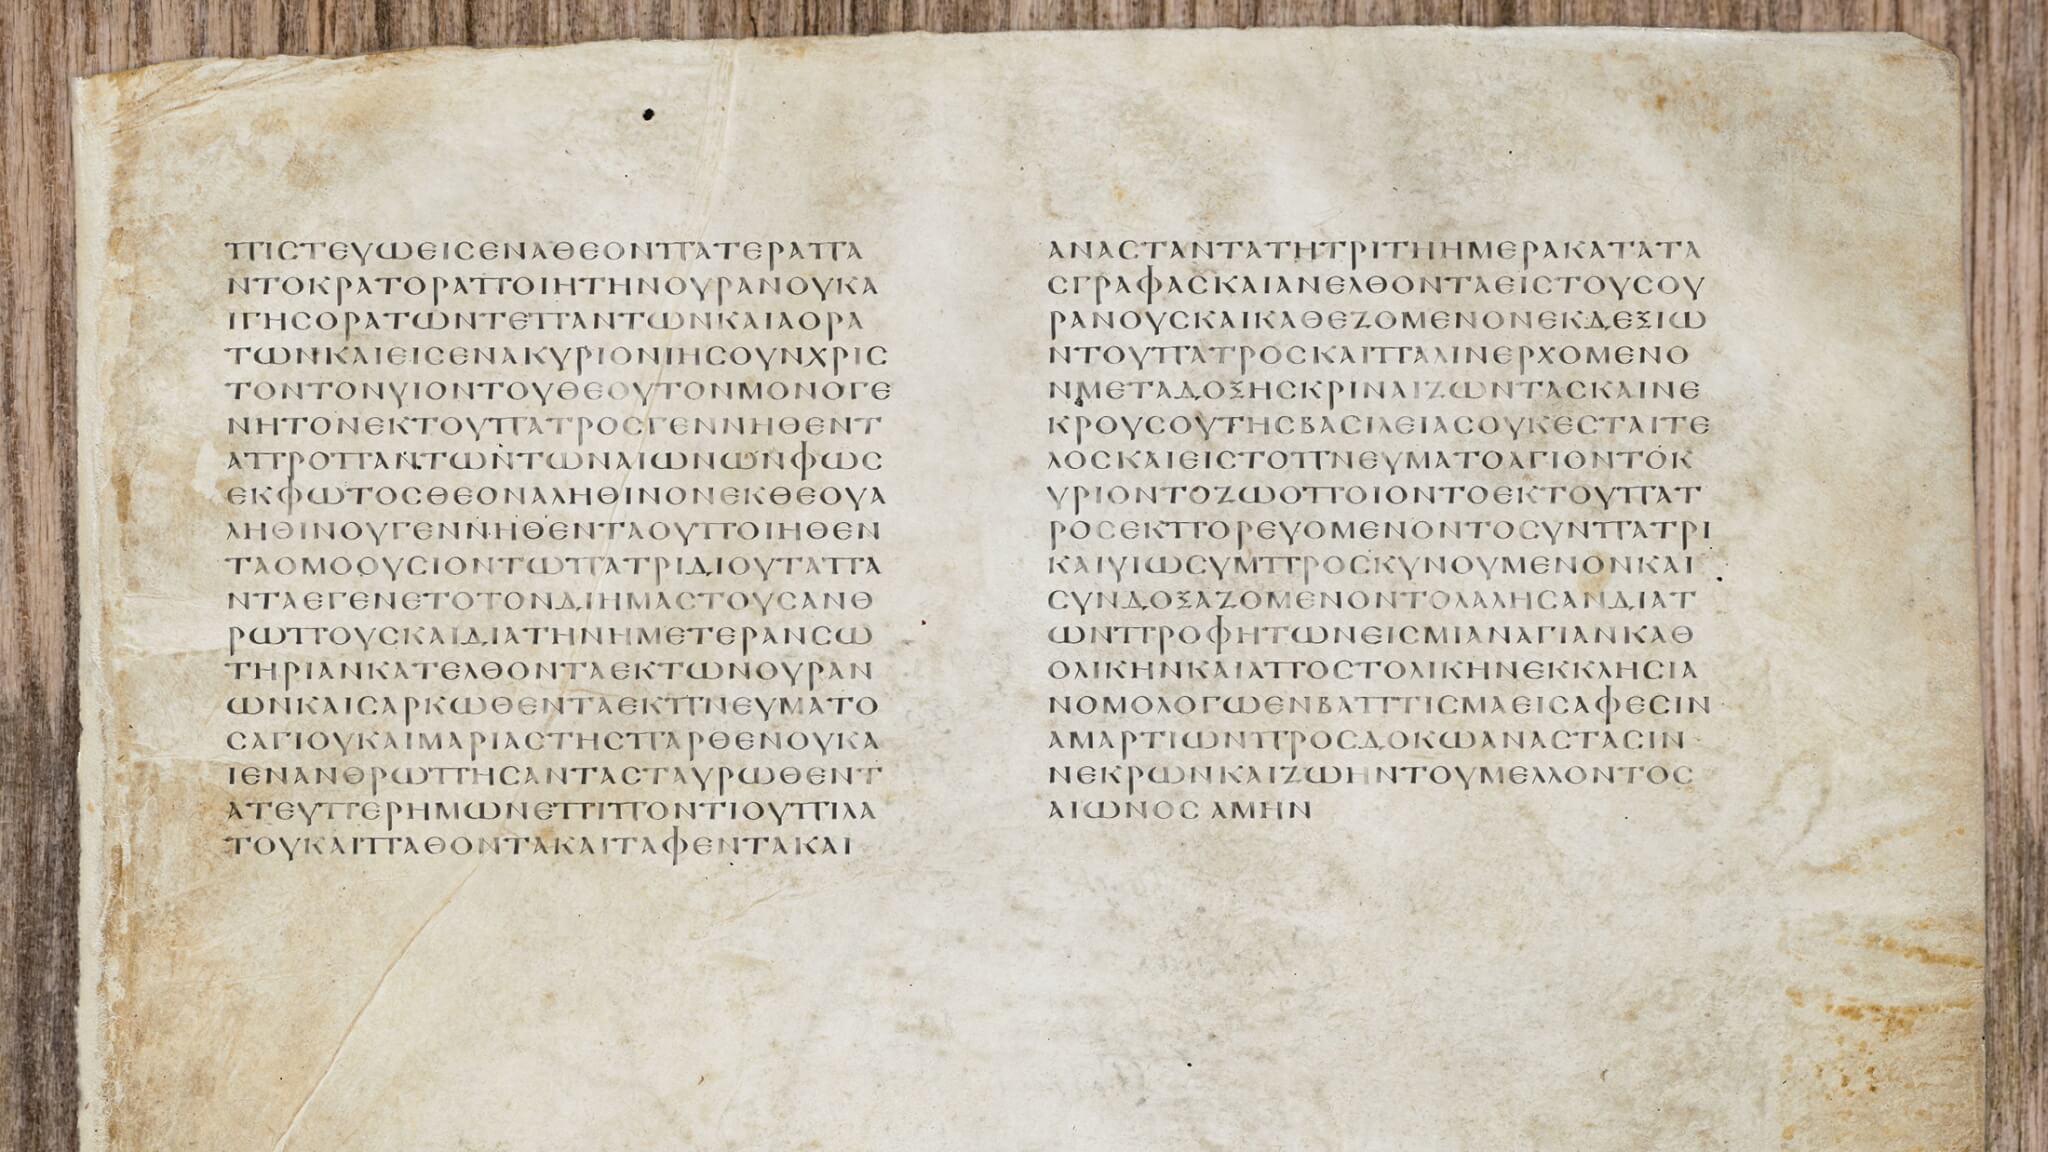 ΠΙCΤΕΥΩΕΙCΕΝΑΘΕΟΝΠΑΤΕΡΑΠΑ
ΝΤΟΚΡΑΤΟΡΑΠΟΙΗΤΗΝΟΥΡΑΝΟΥΚΑ
ΙΓΗCΟΡΑΤΩΝΤΕΠΑΝΤΩΝΚΑΙΑΟΡΑ
ΤΩΝΚΑΙΕΙCΕΝΑΚΥΡΙΟΝΙΗCΟΥΝΧΡΙC
ΤΟΝΤΟΝΥΙΟΝΤΟΥΘΕΟΥΤΟΝΜΟΝΟΓΕ
ΝΗΤΟΝΕΚΤΟΥΠΑΤΡΟCΓΕΝΝΗΘΕΝΤ
ΑΠΡΟΠΑΝΤΩΝΤΩΝΑΙΩΝΩΝΦΩC
ΕΚΦΩΤΟCΘΕΟΝΑΛΗΘΙΝΟΝΕΚΘΕΟΥΑ
ΛΗΘΙΝΟΥΓΕΝΝΗΘΕΝΤΑΟΥΠΟΙΗΘΕΝ
ΤΑΟΜΟΟΥCΙΟΝΤΩΠΑΤΡΙΔΙΟΥΤΑΠΑ
ΝΤΑΕΓΕΝΕΤΟΤΟΝΔΙΗΜΑCΤΟΥCΑΝΘ
ΡΩΠΟΥCΚΑΙΔΙΑΤΗΝΗΜΕΤΕΡΑΝCΩ
ΤΗΡΙΑΝΚΑΤΕΛΘΟΝΤΑΕΚΤΩΝΟΥΡΑΝ
ΩΝΚΑΙCΑΡΚΩΘΕΝΤΑΕΚΠΝΕΥΜΑΤΟ
CΑΓΙΟΥΚΑΙΜΑΡΙΑCΤΗCΠΑΡΘΕΝΟΥΚΑ
ΙΕΝΑΝΘΡΩΠΗCΑΝΤΑCΤΑΥΡΩΘΕΝΤ
ΑΤΕΥΠΕΡΗΜΩΝΕΠΙΠΟΝΤΙΟΥΠΙΛΑ
ΤΟΥΚΑΙΠΑΘΟΝΤΑΚΑΙΤΑΦΕΝΤΑΚΑΙ
ΑΝΑCΤΑΝΤΑΤΗΤΡΙΤΗΗΜΕΡΑΚΑΤΑΤΑ
CΓΡΑΦΑCΚΑΙΑΝΕΛΘΟΝΤΑΕΙCΤΟΥCΟΥ
ΡΑΝΟΥCΚΑΙΚΑΘΕΖΟΜΕΝΟΝΕΚΔΕΞΙΩ
ΝΤΟΥΠΑΤΡΟCΚΑΙΠΑΛΙΝΕΡΧΟΜΕΝΟ
ΝΜΕΤΑΔΟΞΗCΚΡΙΝΑΙΖΩΝΤΑCΚΑΙΝΕ
ΚΡΟΥCΟΥΤΗCΒΑCΙΛΕΙΑCΟΥΚΕCΤΑΙΤΕ
ΛΟCΚΑΙΕΙCΤΟΠΝΕΥΜΑΤΟΑΓΙΟΝΤΟΚ
ΥΡΙΟΝΤΟΖΩΟΠΟΙΟΝΤΟΕΚΤΟΥΠΑΤ
ΡΟCΕΚΠΟΡΕΥΟΜΕΝΟΝΤΟCΥΝΠΑΤΡΙ
ΚΑΙΥΙΩCΥΜΠΡΟCΚΥΝΟΥΜΕΝΟΝΚΑΙ
CΥΝΔΟΞΑΖΟΜΕΝΟΝΤΟΛΑΛΗCΑΝΔΙΑΤ
ΩΝΠΡΟΦΗΤΩΝΕΙCΜΙΑΝΑΓΙΑΝΚΑΘ
ΟΛΙΚΗΝΚΑΙΑΠΟCΤΟΛΙΚΗΝΕΚΚΛΗCΙΑ
ΝΟΜΟΛΟΓΩΕΝΒΑΠΤΙCΜΑΕΙCΑΦΕCΙΝ
ΑΜΑΡΤΙΩΝΠΡΟCΔΟΚΩΑΝΑCΤΑCΙΝ
ΝΕΚΡΩΝΚΑΙΖΩΗΝΤΟΥΜΕΛΛΟΝΤΟC
ΑΙΩΝΟC ΑΜΗΝ